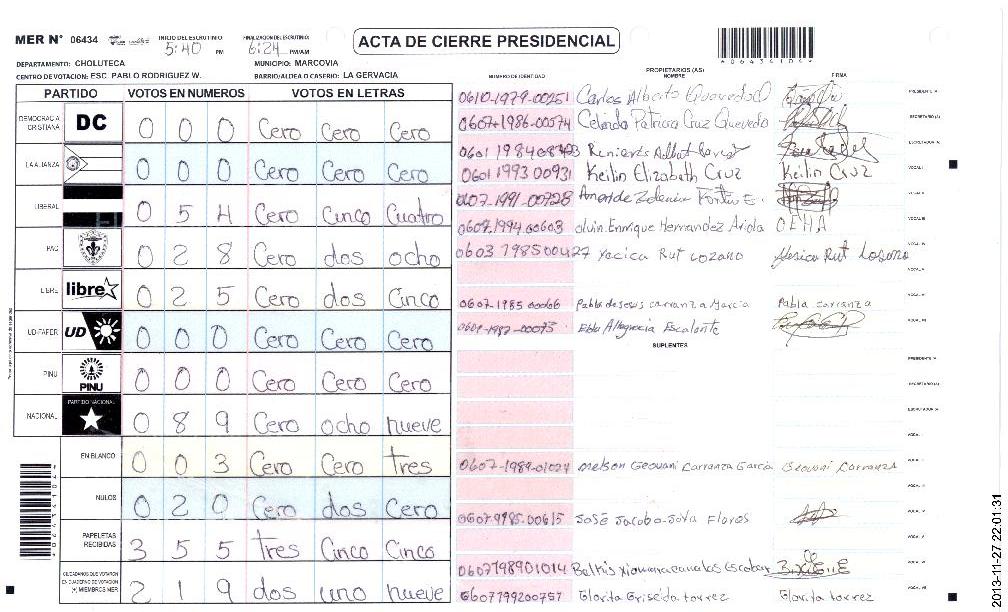 MER N° 06434 INICIO DEL ESCRUTINIO 5:40 PM FINALIZACION DEL ESCRUTINIO 6:24 PM/AM ACTA DE CIERRE PRESIDENCIAL
DEPARTAMENTO: CHOLUTECA MUNICIPIO: MARCOVIA
CENTRO DE VOTACION: ESC. PABLO RODRIGUEZ W. BARRIO/ALDEA O CASERIO: LA GERVACIA
PARTIDO VOTOS EN NUMEROS VOTOS EN LETRAS
DEMOCRACIA CRISTIANA DC 0 0 0 Cero Cero Cero
LA ALIANZA 0 0 0 Cero Cero Cero
LIBERAL 0 5 4 Cero Cinco Cuatro
PAC 0 2 8 Cero dos ocho
LIBRE libre 0 2 5 Cero dos Cinco
UD-FAPER UD 0 0 0 Cero Cero Cero
PINU PINU 0 0 0 Cero Cero Cero
NACIONAL PARTIDO NACIONAL 0 8 9 Cero ocho nueve
EN BLANCO 0 0 3 Cero Cero tres
NULOS 0 2 0 Cero dos Cero
PAPELETAS RECIBIDAS 3 5 5 tres Cinco Cinco
CIUDADANOS QUE VOTARON EN CUADERNO DE VOTACION (+) MIEMBROS MER 2 1 9 dos uno nueve
NUMERO DE IDENTIDAD PROPIETARIOS (AS) NOMBRE FIRMA
0610-1979-00251 Carlos Alberto Quevedo PRESIDENTE
0607-1986-00574 Celinda Patricia Cruz Quevedo SECRETARIO (A)
ESCRUTADOR (A)
0601 1993 00931 Keilin Elizabeth Cruz Keilin Cruz VOCAL I
0607-1991-00728
0607-1994 00603 Enrique Hernandez Ariola OEHA
0603 1985 00427 Yecica Rut Lozano Yesica Rut Lozano
0607-1985 00066 Pabla de Jesus Carranza Garcia Pabla Carranza
Ebla Altagracia Escalante
SUPLENTES
0607-1989-01024 Nelson Geovani Carranza Garcia Geovani Carranza
José Jacobo Joya Flores
0607198901014 Beltis Xiomara Canalas Escobar
0607199200757 Glorita Griselda torrez Glorita torrez
*06434104*
2013-11-27 22:01:31